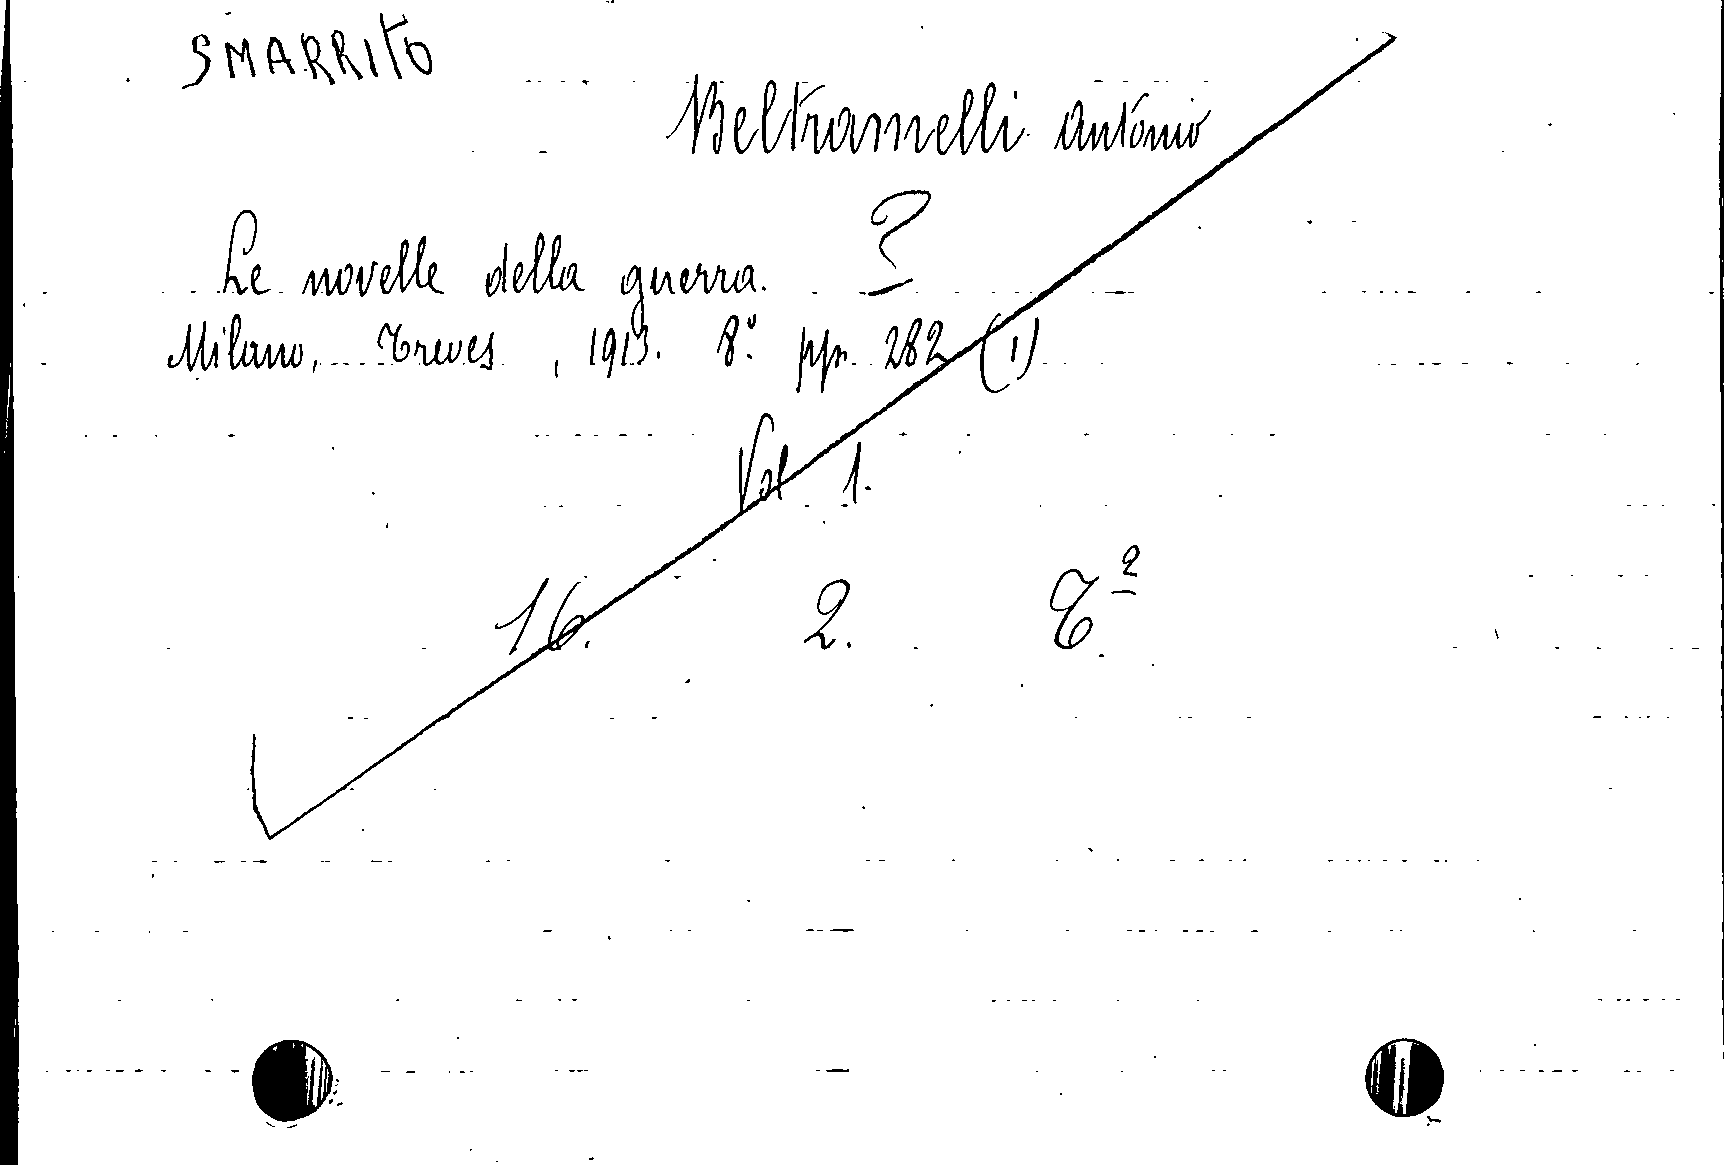 SMARRITO
Beltramelli Antonio
Le novelle della guerra. ?
Milano, Treves, 1913. 8º. pp. 282 (1)
Vol 1.
16. 2. E²